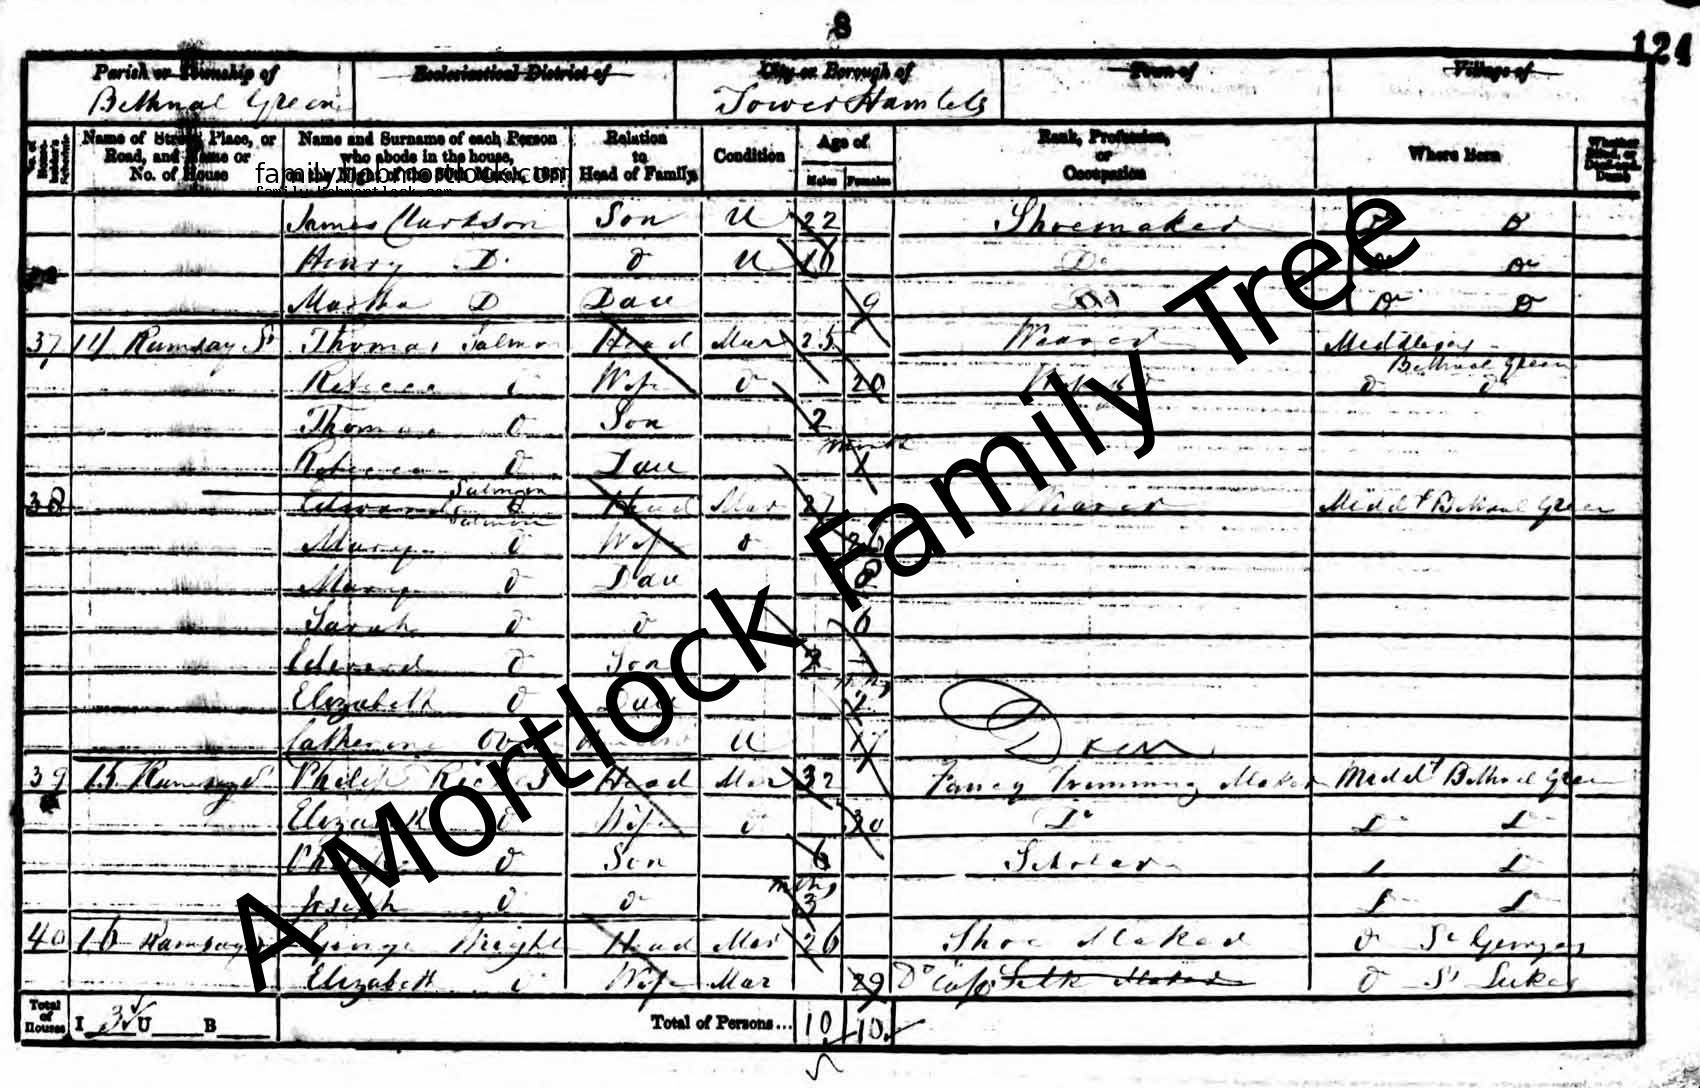 8
124
Parish or Township of Ecclesiastical District of City or Borough of Town of Village of
Bethnal Green Tower Hamlets
No. of Householder's Schedule Name of Street, Place, or Road, and Name or No. of House Name and Surname of each Person who abode in the house, on the Night of the 30th March, 1851 Relation to Head of Family Condition Age of Males Females Rank, Profession, or Occupation Where Born Whether Blind, or Deaf-and-Dumb
family.bobmortlock.com
James Clarkson Son U 22 Shoemaker Do Do
Henry D. Do U 16 Do Do Do
Martha D Dau 9 Do Do
37 14 Ramsay St Thomas Salmon Head Mar 25 Weaver Middlesex
Bethnal Green
Rebecca Do Wife Do 20 Do Do
Thomas Do Son 2
Month
Rebecca Do Dau
Salmon
38 Edward Do Head Mar 27 Weaver Middx Bethnal Green
Salmon
Mary Do Wife Do 26
Mary Do Dau
Sarah Do Do 6
Edward Do Son
Elizabeth Do Dau 2
Catherine U 17
39 15 Ramsay St Philip Head Mar 32 Fancy Trimming Maker Middx Bethnal Green
Elizabeth Do Wife Do 30 Do Do Do
Philip Do Son 6 Scholar Do Do
mths
Joseph Do Do 3 Do Do
40 16 Ramsay St George Wright Head Mar 26 Shoe Maker Do St Georges
Elizabeth Do Wife Mar 29 Do Silk Maker Do St Lukes
Total of Houses I 3 U B Total of Persons... 10 10
A Mortlock Family Tree